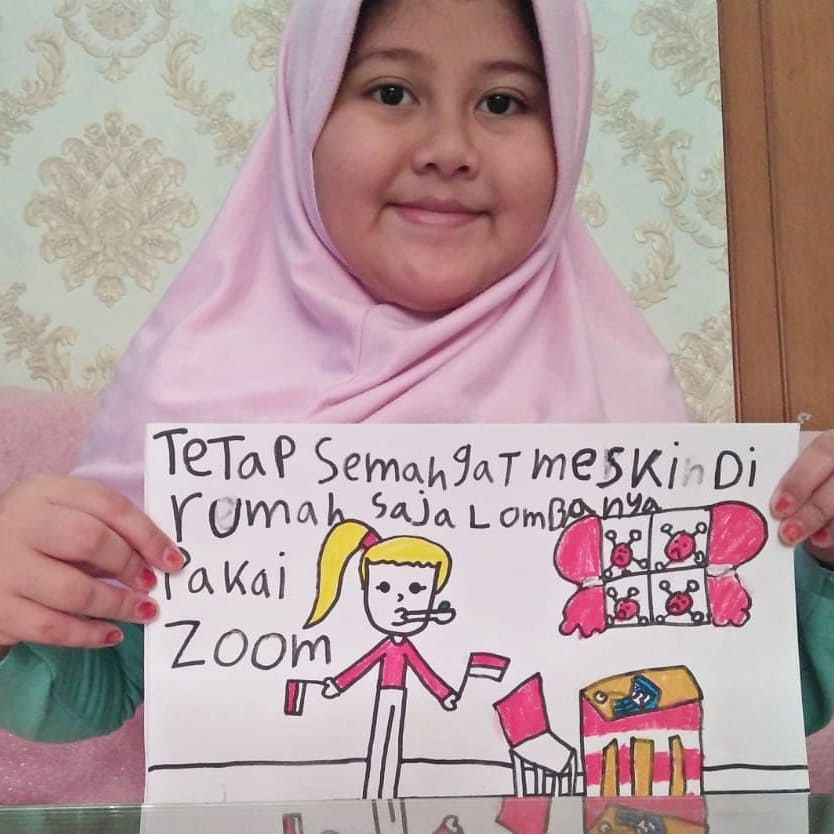 TeTaP SemahgaT meskin Di
rumah saja LomBanya
Pakai
ZOOm